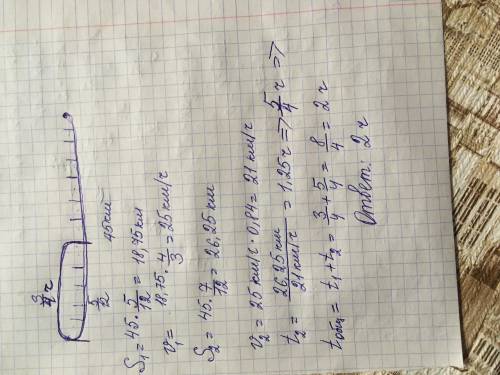 3/4 ч
5/12
45км
S₁ = 45 · 5/12 = 18,75 км
v₁ = 18,75 · 4/3 = 25 км/ч
S₂ = 45 · 7/12 = 26,25 км
v₂ = 25 км/ч · 0,84 = 21 км/ч
t₂ = 26,25 км / 21 км/ч = 1,25 ч => 5/4 ч =>
tобщ = t₁ + t₂ = 3/4 + 5/4 = 8/4 = 2 ч
Ответ: 2 ч